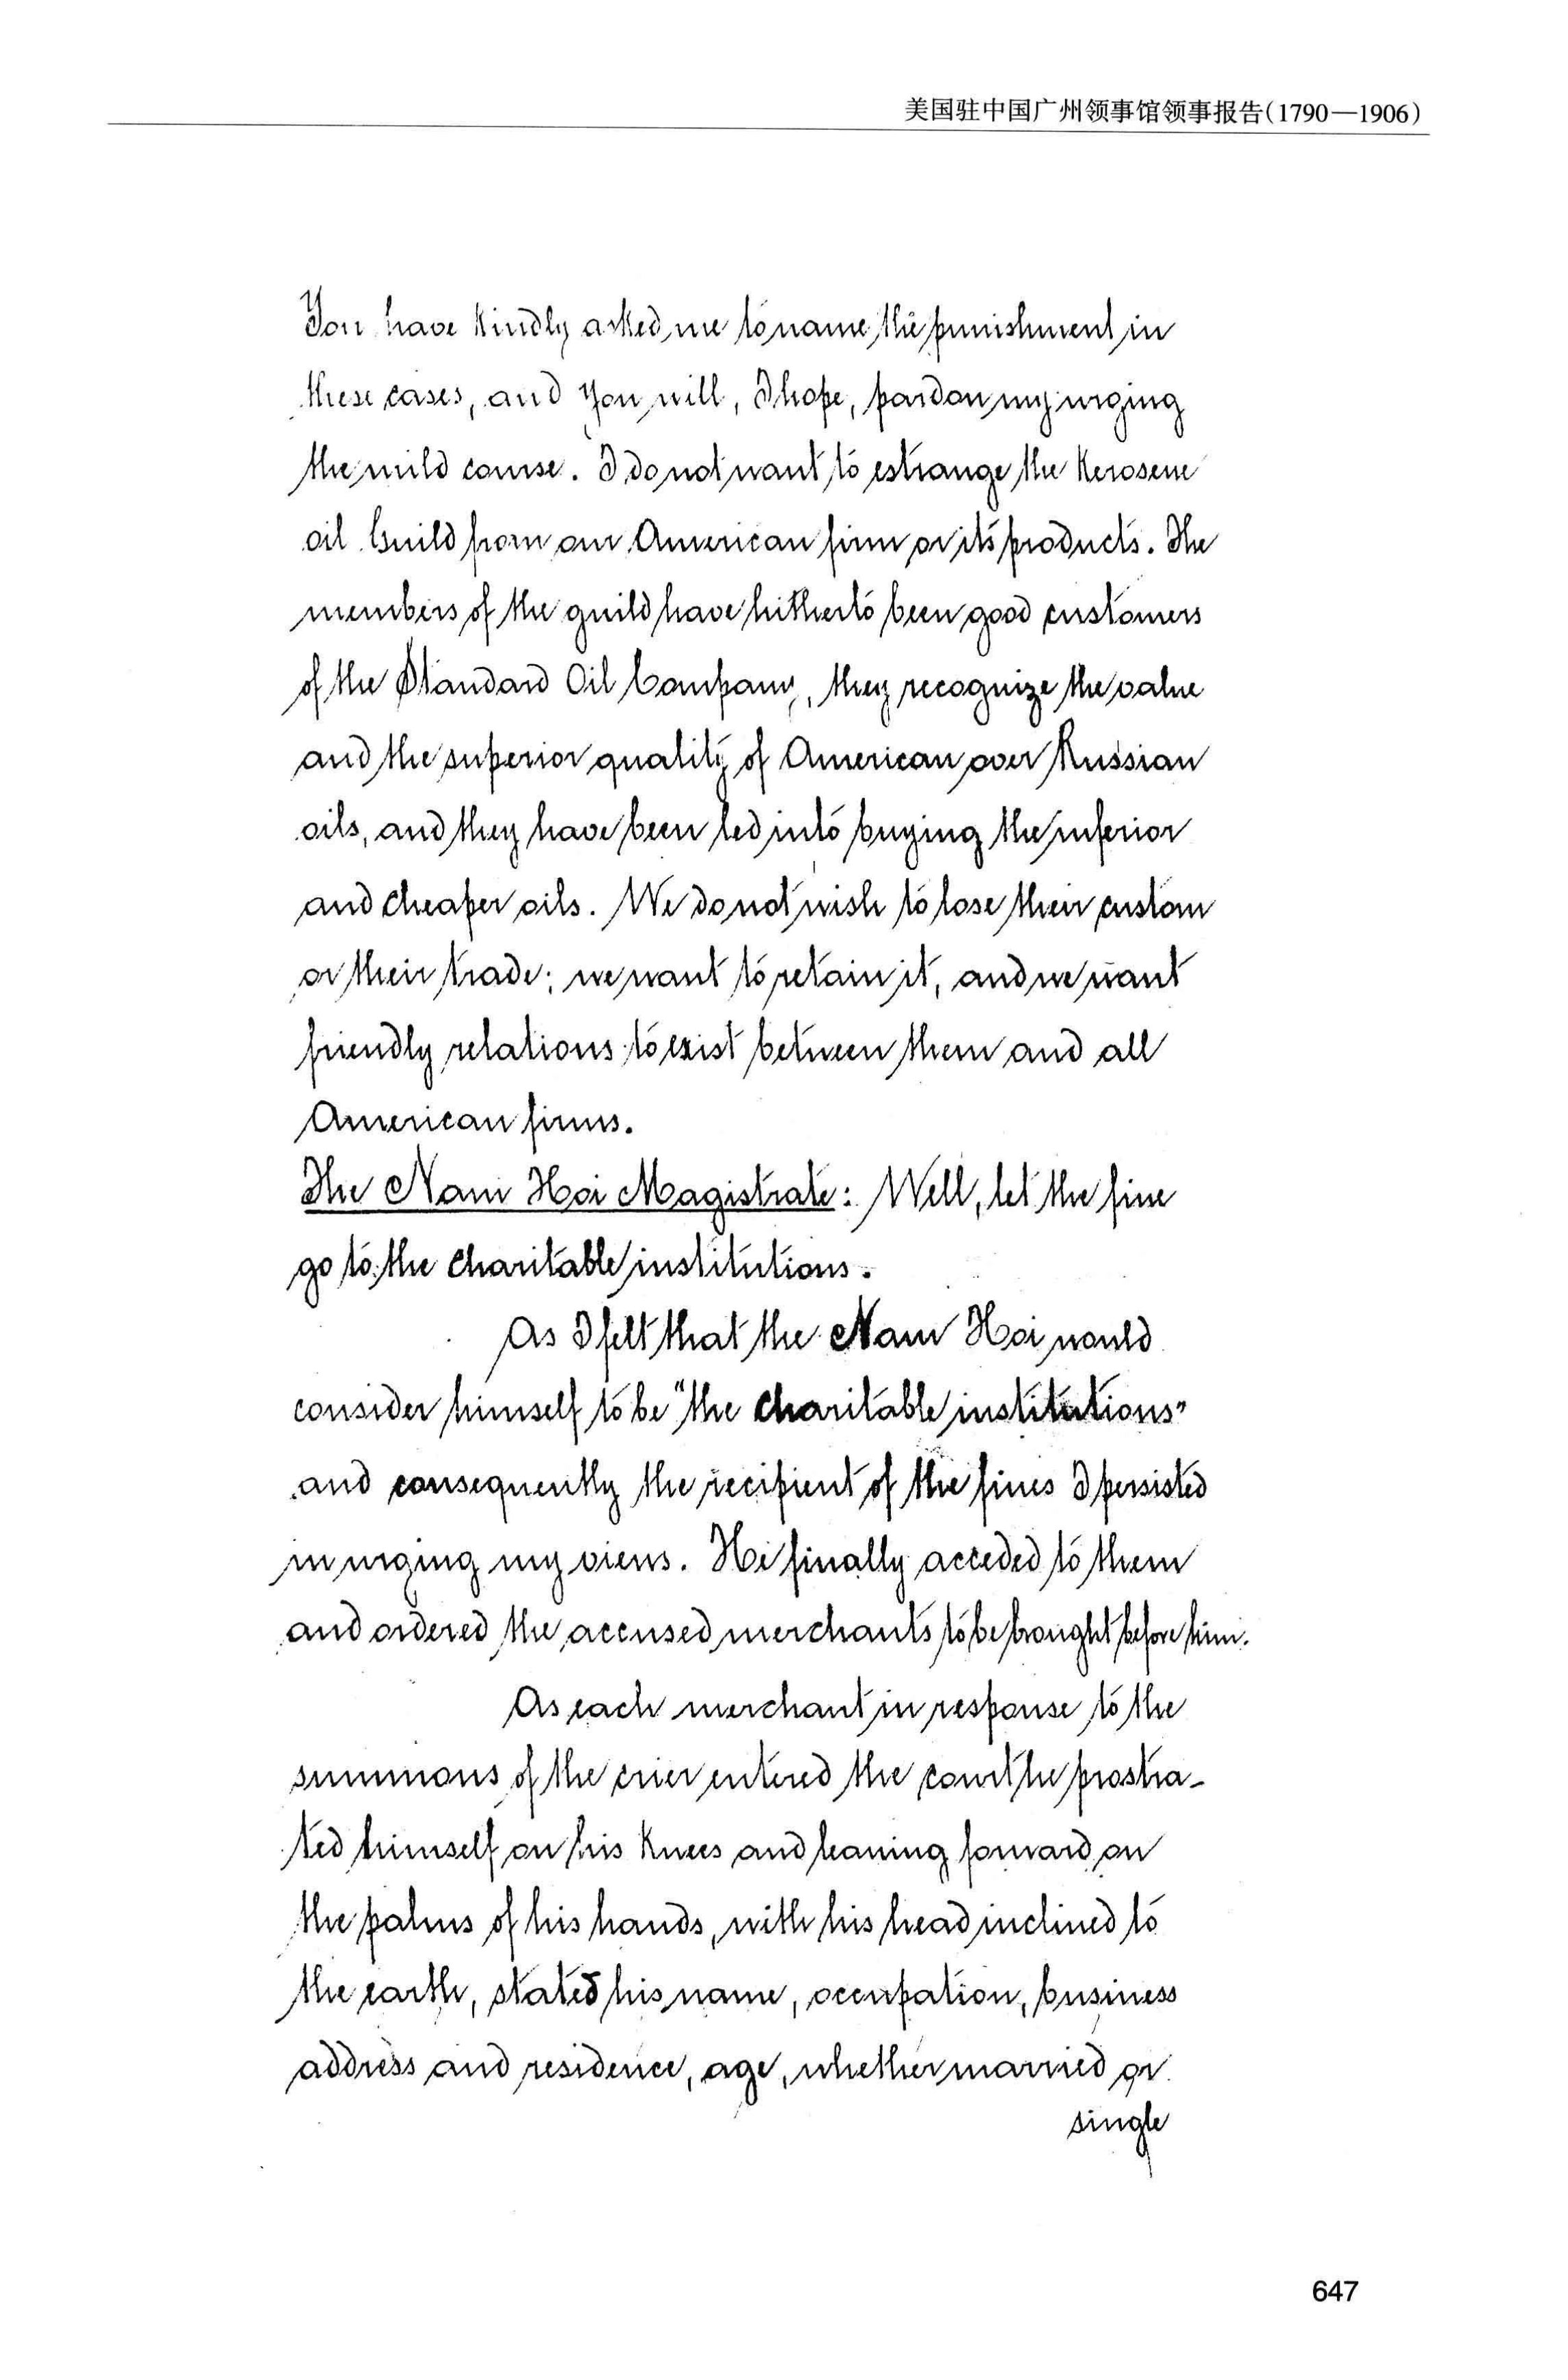 美国驻中国广州领事馆领事报告(1790—1906)
You have kindly asked me to name the punishment in
these cases, and you will, I hope, pardon my urging
the mild course. I do not want to estrange the Kerosene
oil Guild from our American firm or its products. The
members of the guild have hitherto been good customers
of the Standard Oil Company, they recognize the value
and the superior quality of American over Russian
oils, and they have been led into buying the inferior
and cheaper oils. We do not wish to lose their custom
or their trade; we want to retain it, and we want
friendly relations to exist between them and all
American firms.
The Nam Hoi Magistrate: Well, let the fine
go to the charitable institutions.
As I felt that the Nam Hoi would
consider himself to be "the charitable institutions"
and consequently the recipient of the fines I persisted
in urging my views. He finally acceded to them
and ordered the accused merchants to be brought before him.
As each merchant in response to the
summons of the crier entered the court he prostra-
ted himself on his knees and leaning forward on
the palms of his hands, with his head inclined to
the earth, stated his name, occupation, business
address and residence, age, whether married or
single
647